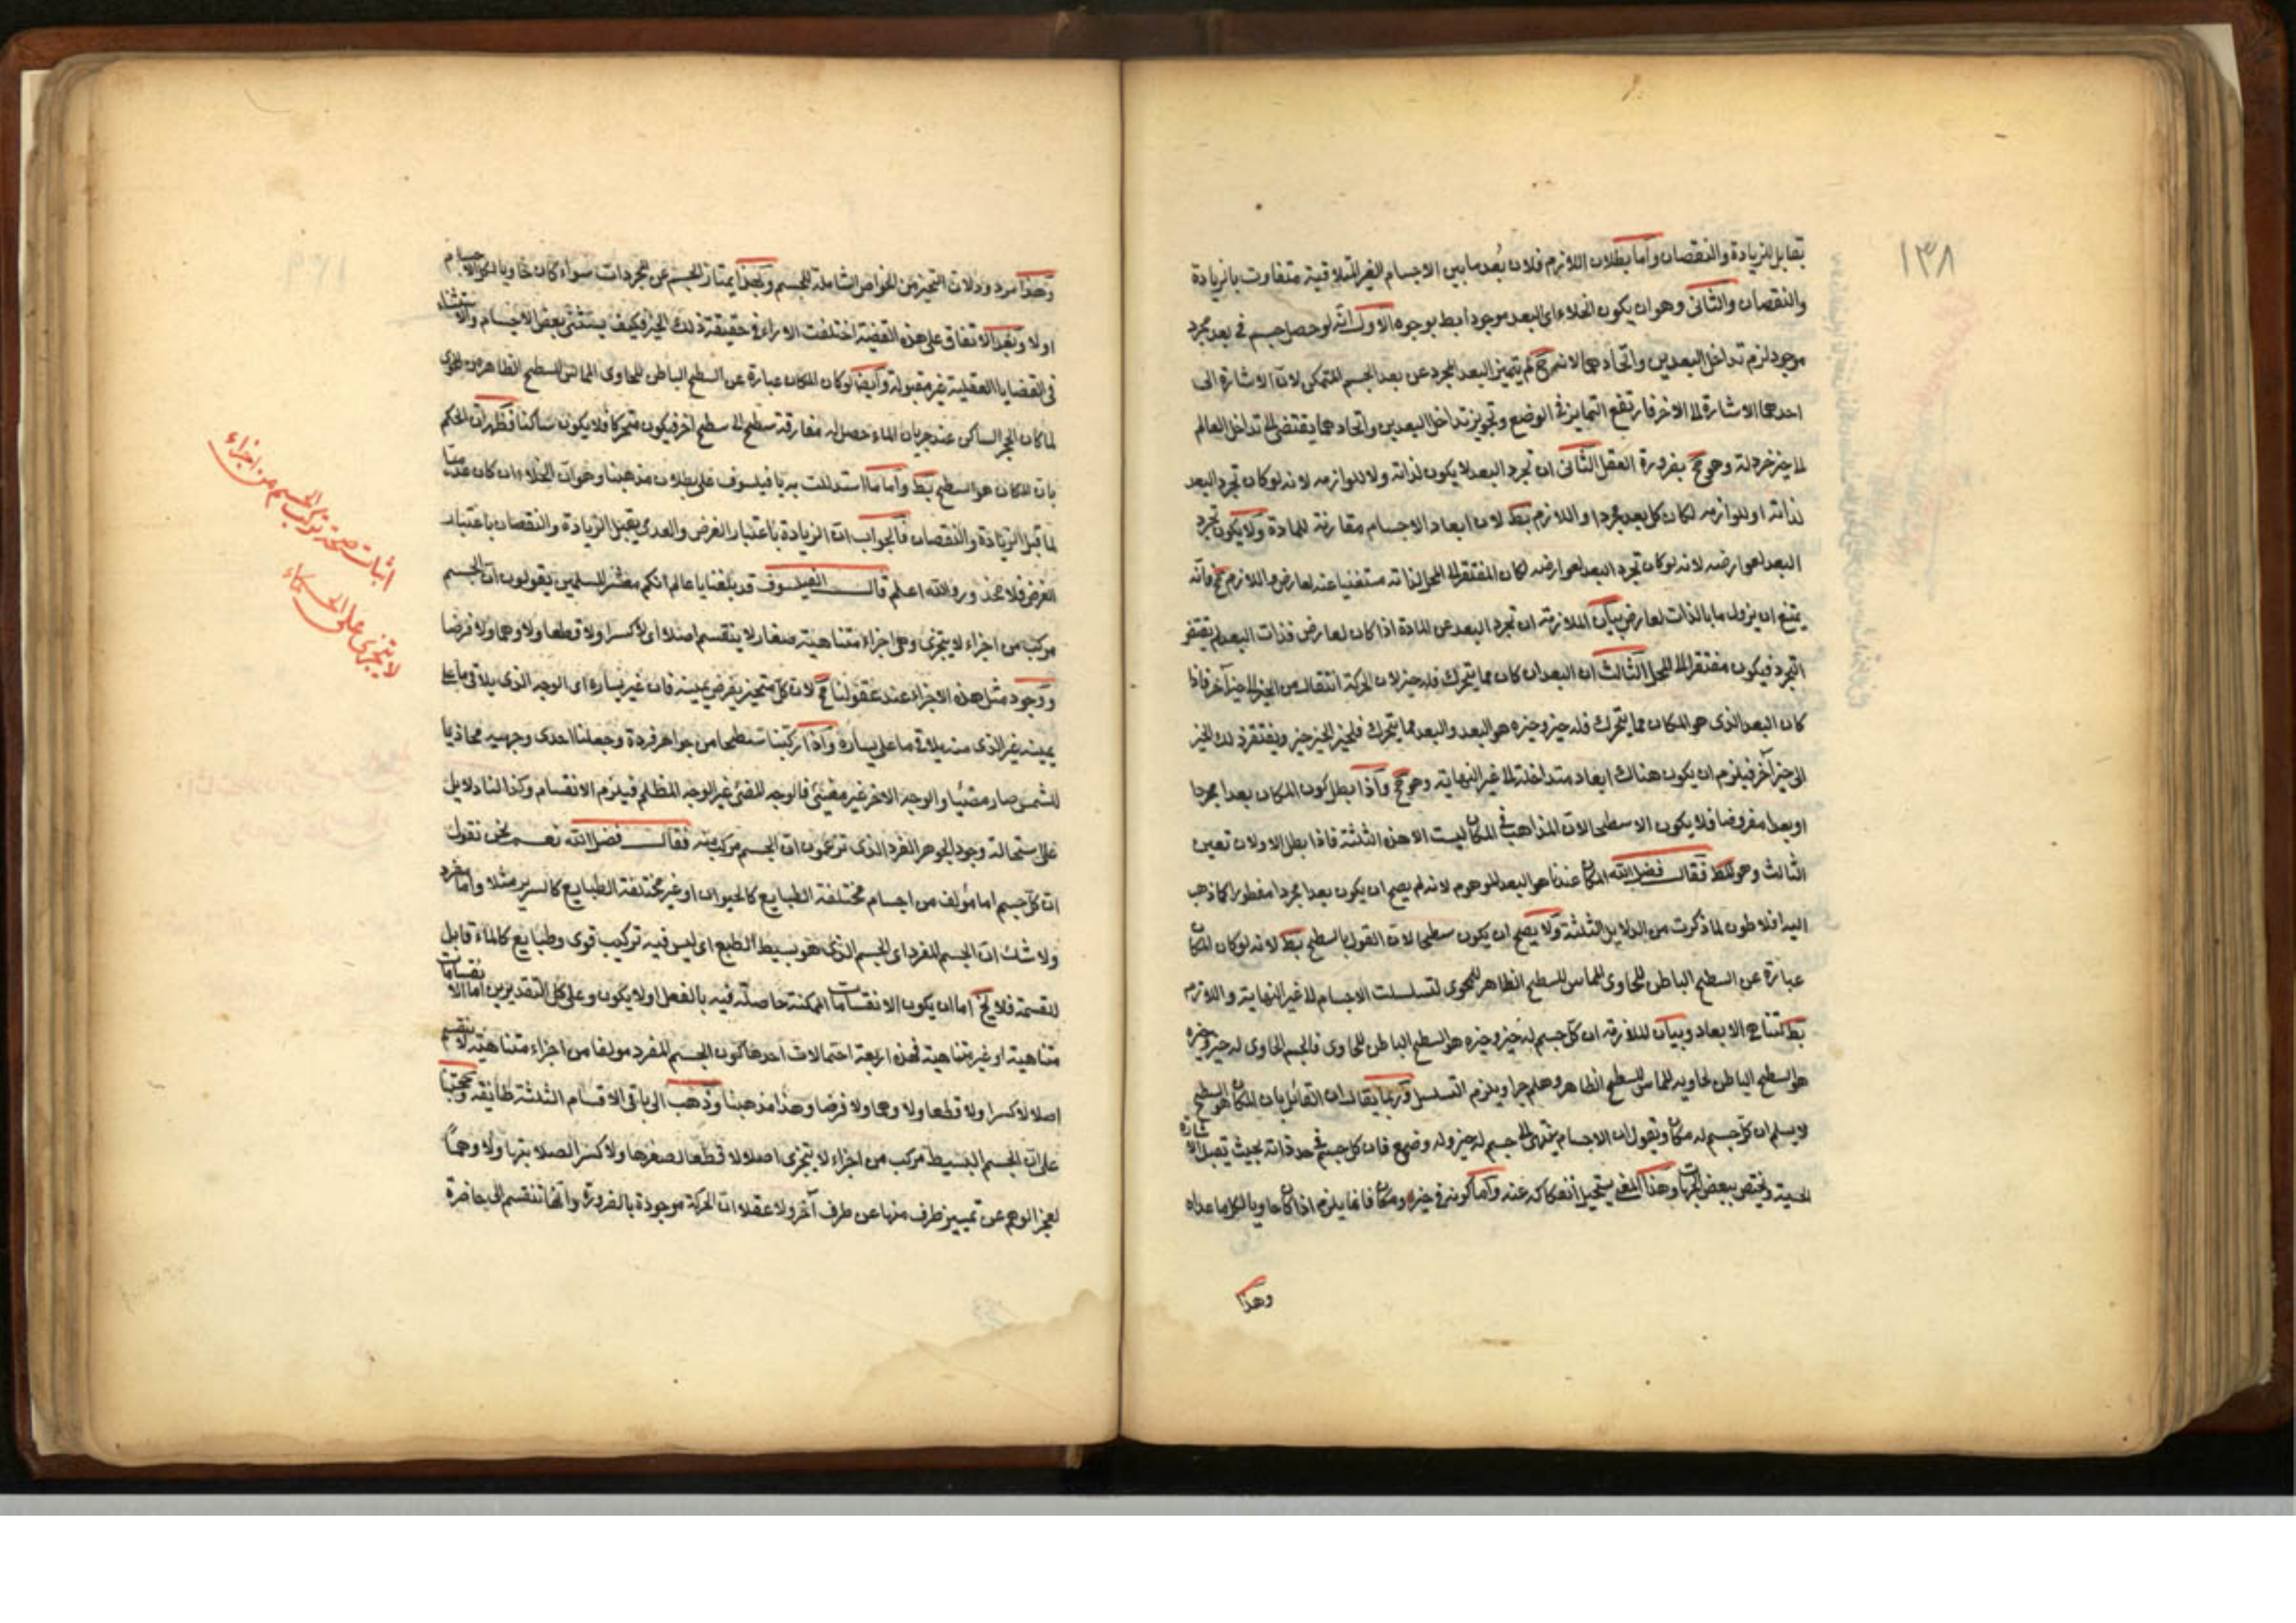 ١٣٨
تقابل الزيادة والنقصان وأما بطلان اللازم فلان بُعد ما بين الاجسام الغير المتلاقية متفاوت بالزيادة
والنقصان والثانى وهو ان يكون الخلاء اى البعد موجودا بط بوجوه الاول انه لو حصل جسم فى بعد مجرد
موجود لزم تداخل البعدين واتحادهما لانه ح لم يتميز البعد المجرد عن بعد الجسم المتمكن لان الاشارة الى
احدهما الاشارة الى الاخر فارتفع التمايز فى الوضع وتجويز تداخل البعدين واتحادهما يقتضى الى تداخل العالم
فى حيز خردلة وهو مح بضرورة العقل الثانى ان تجرد البعد لا يكون لذاته ولا للوازمه لانه لو كان تجرد البعد
لذاته او للوازمه لكان كل بعد مجردا واللازم بط لان ابعاد الاجسام مقارنة للمادة ولا يكون تجرد
البعد لعوارضه لانه لو كان تجرد البعد لعوارضه لكان المفتقر الى المحل لذاته مستغنيا عنه لعارض واللازم مح فانه
يمتنع ان يزول ما بالذات لعارض بيان الملازمة ان تجرد البعد عن المادة اذا كان لعارض فذات البعد لم يقتض
التجرد فيكون مفتقرا الى المحل الثالث ان البعد ان كان مما يتحرك فله حيز لان الحركة انتقال من الحيز الى حيز آخر فاذا
كان البعد الذى هو المكان مما يتحرك فله حيز وحيزه هو البعد والبعد مما يتحرك فلحيز الحيز حيز ويفتقر ذلك الحيز
الى حيز آخر فيلزم ان يكون هناك ابعاد متداخلة الى غير النهاية وهو مح واذا بطل كون المكان بعدا مجردا
او بعدا مفروضا فلا يكون الا سطحا لان المذاهب فى المكان ليست الا هذه الثلثة فاذا بطل الاولان تعين
الثالث وهو المط فقال فضل الله المكان عندنا هو البعد الموهوم لانه لم يصح ان يكون بعدا مجردا مفطورا كما ذهب
اليه افلاطون لما ذكرت من الدلايل الثلثة ولا يصح ان يكون سطحا لان القول بالسطح بط لانه لو كان المكان
عبارة عن السطح الباطن للحاوى المماس للسطح الظاهر للمحوى لتسلسلت الاجسام الى غير النهاية واللازم
بط لتناهى الابعاد وبيان الملازمة ان كل جسم له حيز وحيزه هو السطح الباطن للحاوى فالجسم الحاوى له حيز وحيزه
هو السطح الباطن لحاويه المماس للسطح الظاهر وهلم جرا ويلزم التسلسل وربما يقال ان القائل بان المكان هو السطح
لا يسلم ان كل جسم له مكان ويقول ان الاجسام ينتهى الى جسم له حيز وله وضع فان كل جسم فى حد ذاته بحيث تقبل الاشارة
الحسية ويختص ببعض الجهات وهذا المعنى يستحيل انفكاكه عنه واما كونه فى حيزه ومكان فانما يلزم اذا كان حاويا لكل ما عداه
وهذا
وهذا مردود لان التحيز من الخواص الشاملة للجسم وبهذا يمتاز الجسم عن المجردات سواء كان حاويا لكل الاجسام
او لا وبعد الاتفاق على هذه القضية اختلفت الاراء فى حقيقة ذلك الحيز فكيف يستثنى بعض الاجسام والاستثناء
فى القضايا العقلية غير مقبولة وأيضا لو كان المكان عبارة عن السطح الباطن للحاوى المماس للسطح الظاهر من المحوى
لما كان الحجر الساكن عند جريان الماء حصل له مفارقة سطح الى سطح آخر فيكون متحركا فلا يكون ساكنا فظهر ان الحكم
بان المكان هو السطح بط وأما ما استدللت به يا فيلسوف على بطلان مذهبنا وهو ان الخلاء ان كان عدميا
لما قبل الزيادة والنقصان فالجواب ان الزيادة باعتبار الفرض والعدمى يقبل الزيادة والنقصان باعتبار
الفرض فلا محذور والله اعلم قال الفيلسوف قد بلغنا يا عالم انكم معشر المسلمين يقولون ان الجسم
مركب من اجزاء لا يتجزى وهى اجزاء متناهية صغار لا ينقسم اصلا اى لا كسرا ولا قطعا ولا وهما ولا فرضا
ووجود مثل هذه الاجزاء عند عقولنا مح لان كل متحيز يفرض يمينه فان غير يساره اى الوجه الذى يلاقى ما على
يمينه غير الذى منه يلاقى ما على يساره واذا ركبنا سطحا من جواهر فردة وجعلنا احدى وجهيه محاذيا
للشمس صار مضيئا والوجه الاخر غير مضيئ فالوجه المضئ غير الوجه المظلم فيلزم الانقسام وكذا لنا دلايل
على استحالة وجود الجوهر الفرد الذى تزعمون ان الجسم مركب منه فقال فضل الله نعم نحن نقول
ان كل جسم اما مؤلف من اجسام مختلفة الطبايع كالحيوان او غير مختلفة الطبايع كالسرير مثلا واما مفرد
ولا شك ان الجسم المفرد اى الجسم الذى هو بسيط الطبع اى ليس فيه تركيب قوى وطبايع كالماء قابل
للقسمة فلا يخ اما ان يكون الانقسامات الممكنة حاصلة فيه بالفعل او لا يكون وعلى كل التقديرين اما الانقسامات
متناهية او غير متناهية فهذه اربعة احتمالات احدها كون الجسم المفرد مولفا من اجزاء متناهية لا تنقسم
اصلا لا كسرا ولا قطعا ولا وهما ولا فرضا وهذا مذهبنا وذهب الى باقى الاقسام الثلثة طايفة وحجتنا
على ان الجسم البسيط مركب من اجزاء لا يتجزى اصلا لا قطعا لصغرها ولا كسرا لصلابتها ولا وهما
لعجز الوهم عن تمييز طرف منها عن طرف آخر ولا عقلا ان الحركة موجودة بالضرورة وانها تنقسم الى حاضرة
اثبات صحة تركب الجسم من اجزاء
لا يتجزى على الحكماء